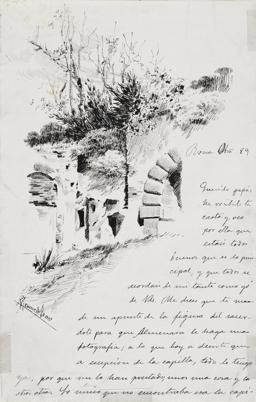 Roma Obre 89
Querido papá:
He recibido tu
carta y veo
por ella que
estais todos
buenos que es lo prin-
cipal, y que todos se
acordan de mi tanto como yo
de Vds. Me dices que te man-
de un apunte de la figura del sacer-
dote para que Almenara le haga una
fotografia; a lo que hoy a decirte que
a escepcion de la capilla, todo lo tengo
ya, por que me lo han prestado, unos una cosa y los
otros otra. Lo unico que no encontraba era la capi-